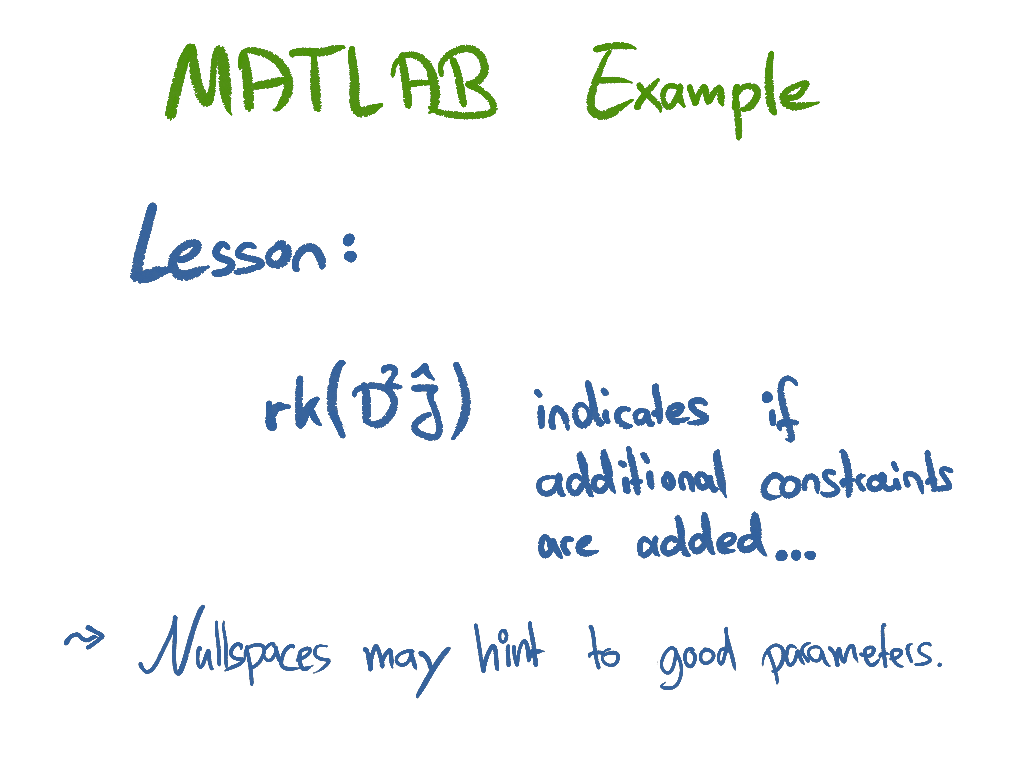 MATLAB Example
Lesson:
rk(D²Ĵ) indicates if
additional constraints
are added...
⇝ Nullspaces may hint to good parameters.